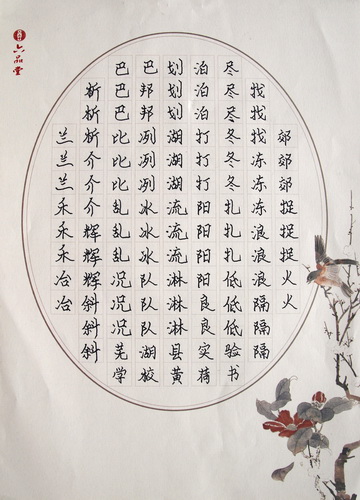 六品堂
巴巴划泊尽
析巴邦划泊尽找
析巴邦划泊尽找
兰析比冽湖打冬找郊
兰介比冽湖打冬冻郊
兰介比冽湖打冬冻郊
禾介乱冰流阳扎冻捉
禾辉乱冰流阳扎浪捉
禾辉乱冰流阳扎浪捉
冶辉况队淋阳低浪火
冶斜况队淋良低隔火
斜况队淋良低隔
斜芜湖县实验隔
学校黄荷书